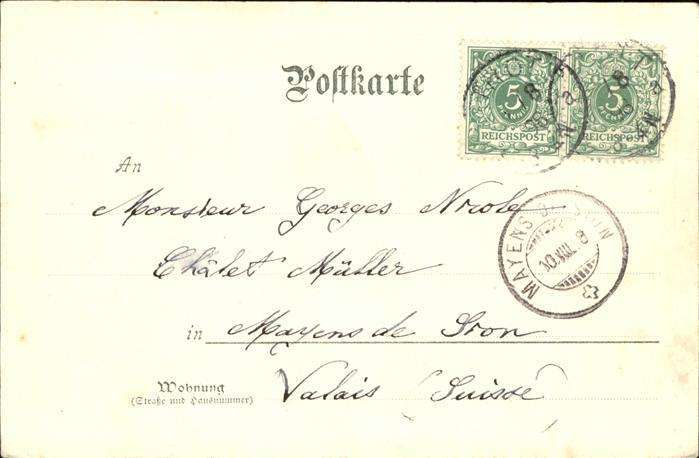 Postkarte
5 5
PFENNIG PFENNIG
REICHSPOST REICHSPOST
An
Monsieur Georges Nicole
Châlet Müller
in Mayens de Sion
Wohnung
(Straße und Hausnummer)
Valais (Suisse)
MAYENS DE SION